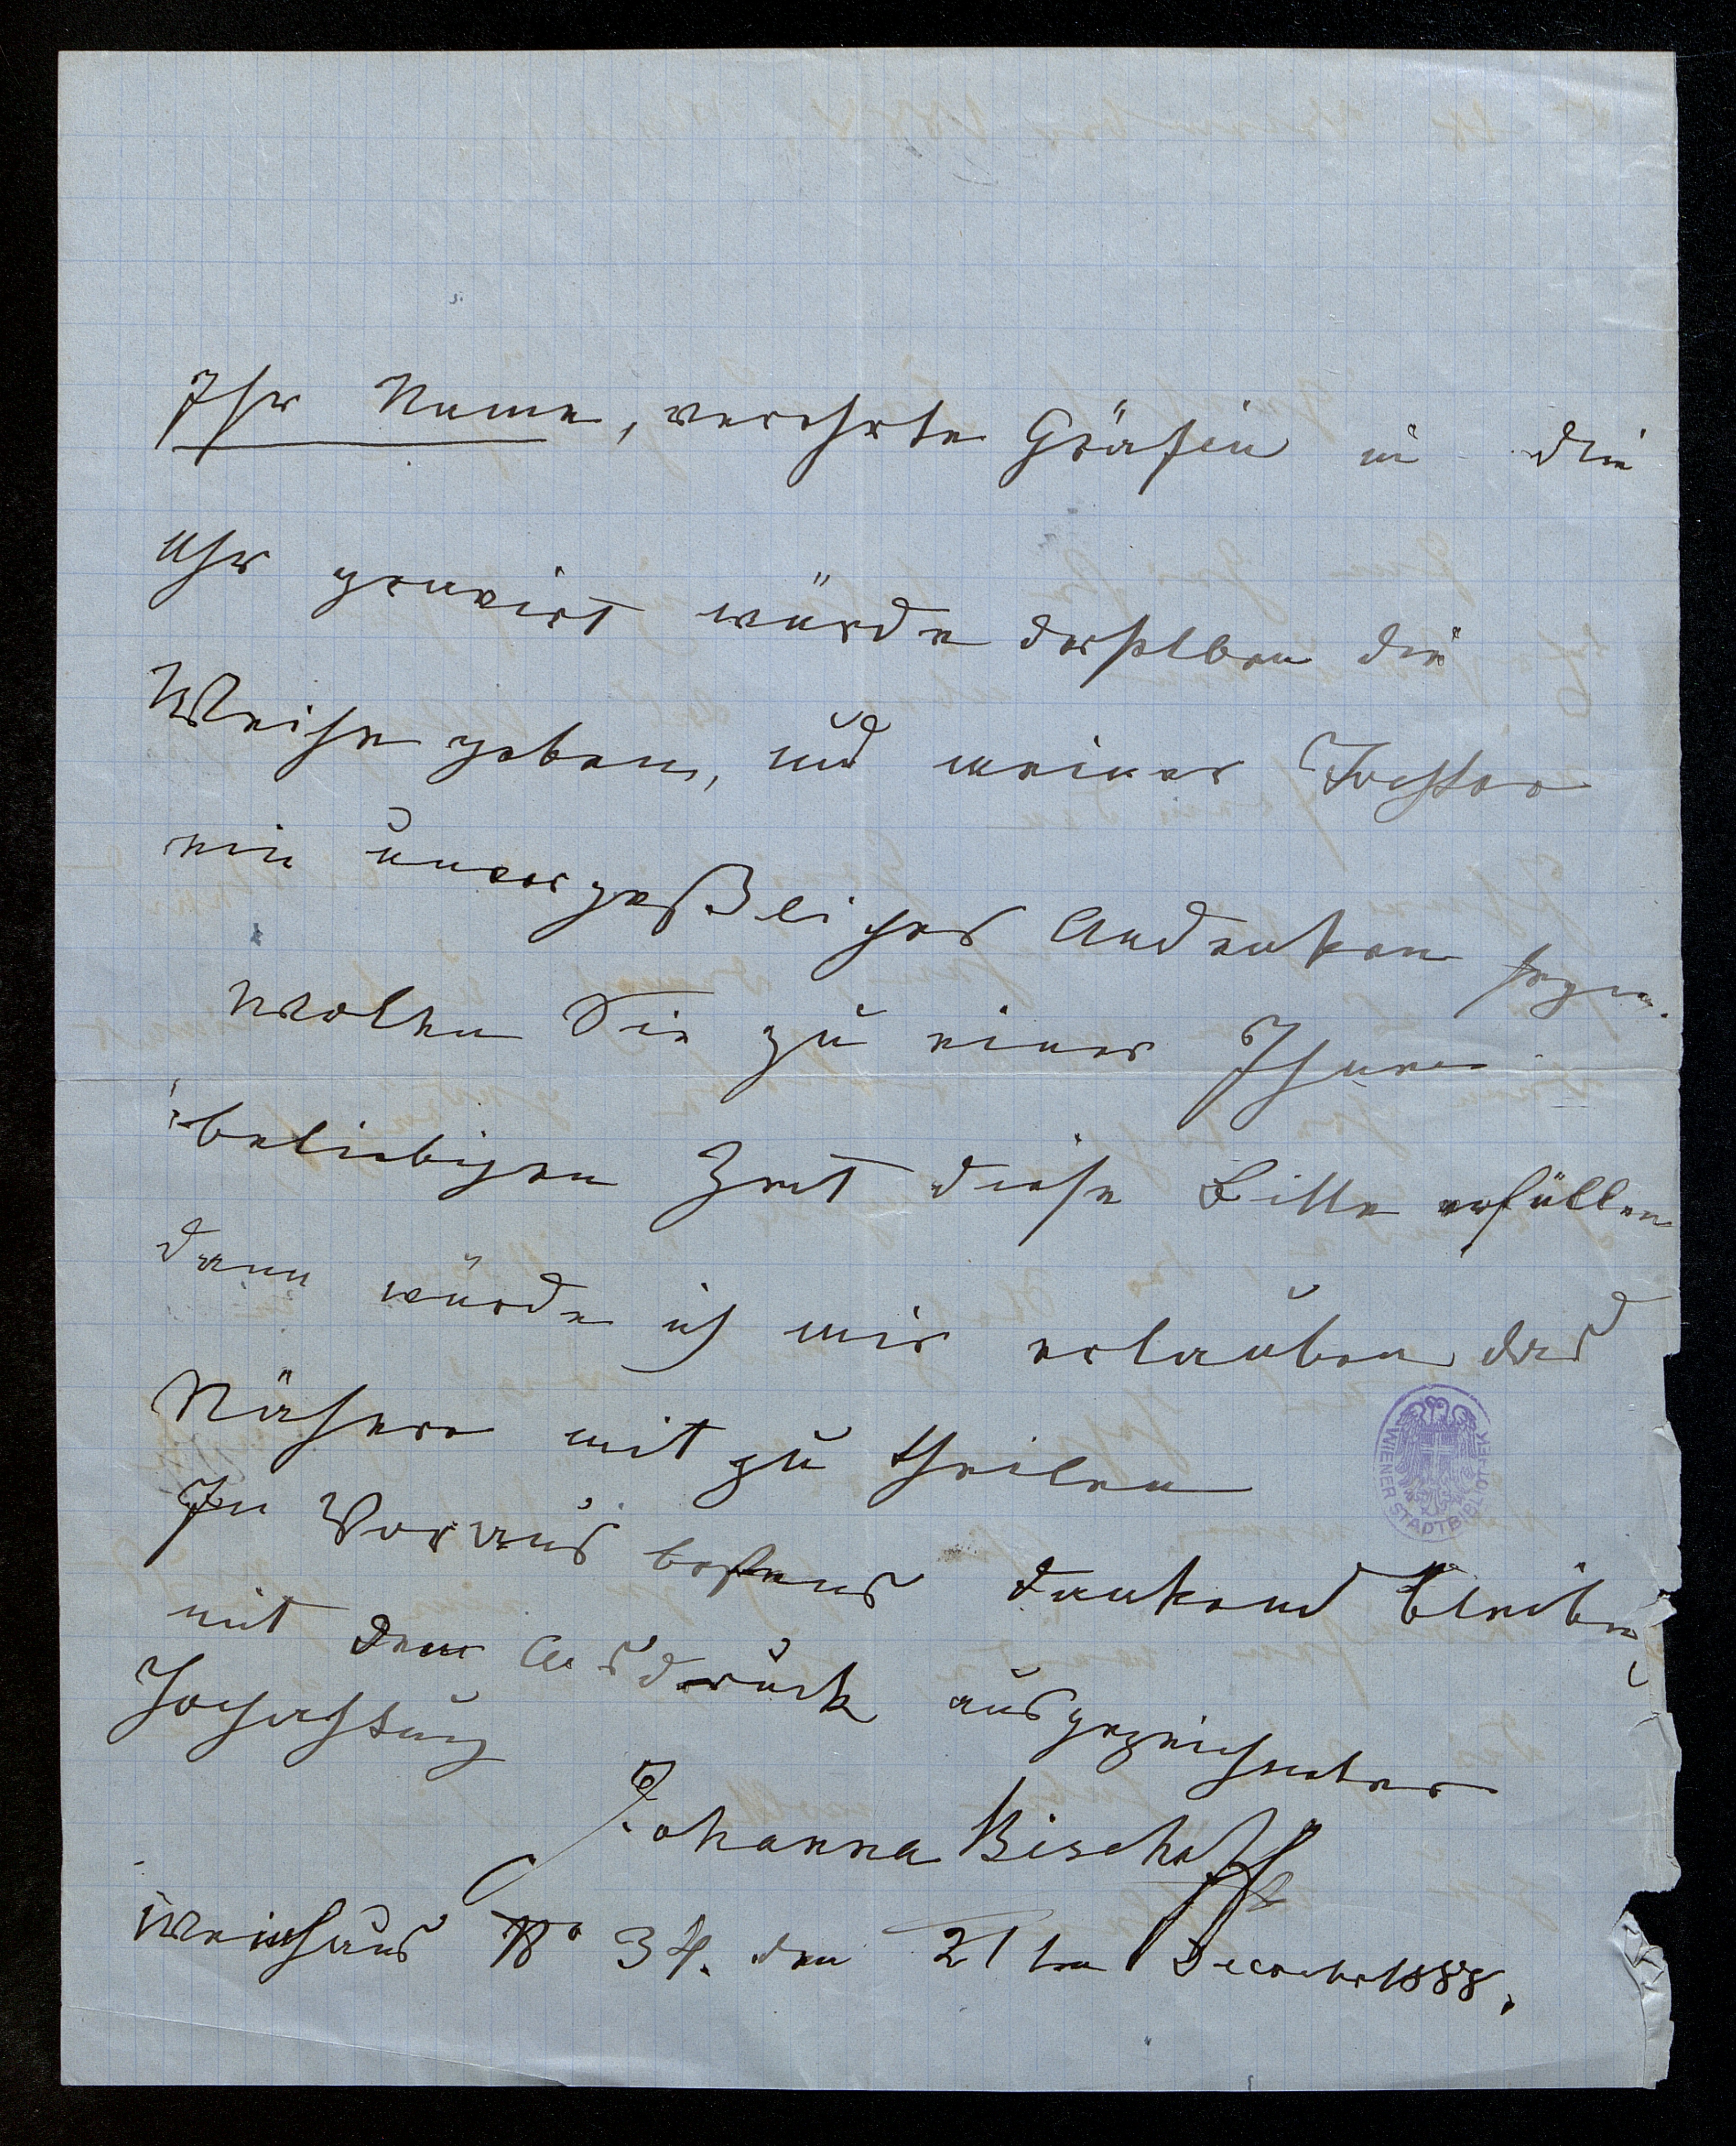 Ihr Name, verehrte Gräfin in die
Uhr gravirt würde derselben die
Weihe geben, und meiner Tochter
ein unvergeßliches Andenken seyn.
Wollen Sie zu einer Ihnen
beliebigen Zeit diese Bitte erfüllen
dann würde ich mir erlauben das
Nähere mit zu theilen
Im Voraus bestens dankend bleibe
mit dem Ausdruck ausgezeichneter
Hochachtung
Johanna Bischoff
Weinhaus No 34. den 21ten December 1888.
WIENER STADTBIBLIOTHEK